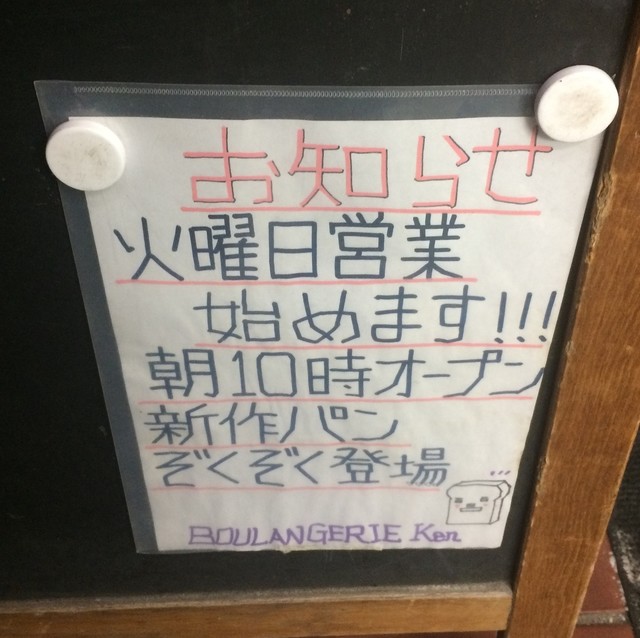 お知らせ
火曜日営業
始めます!!!
朝10時オープン
新作パン
ぞくぞく登場
BOULANGERIE Ken